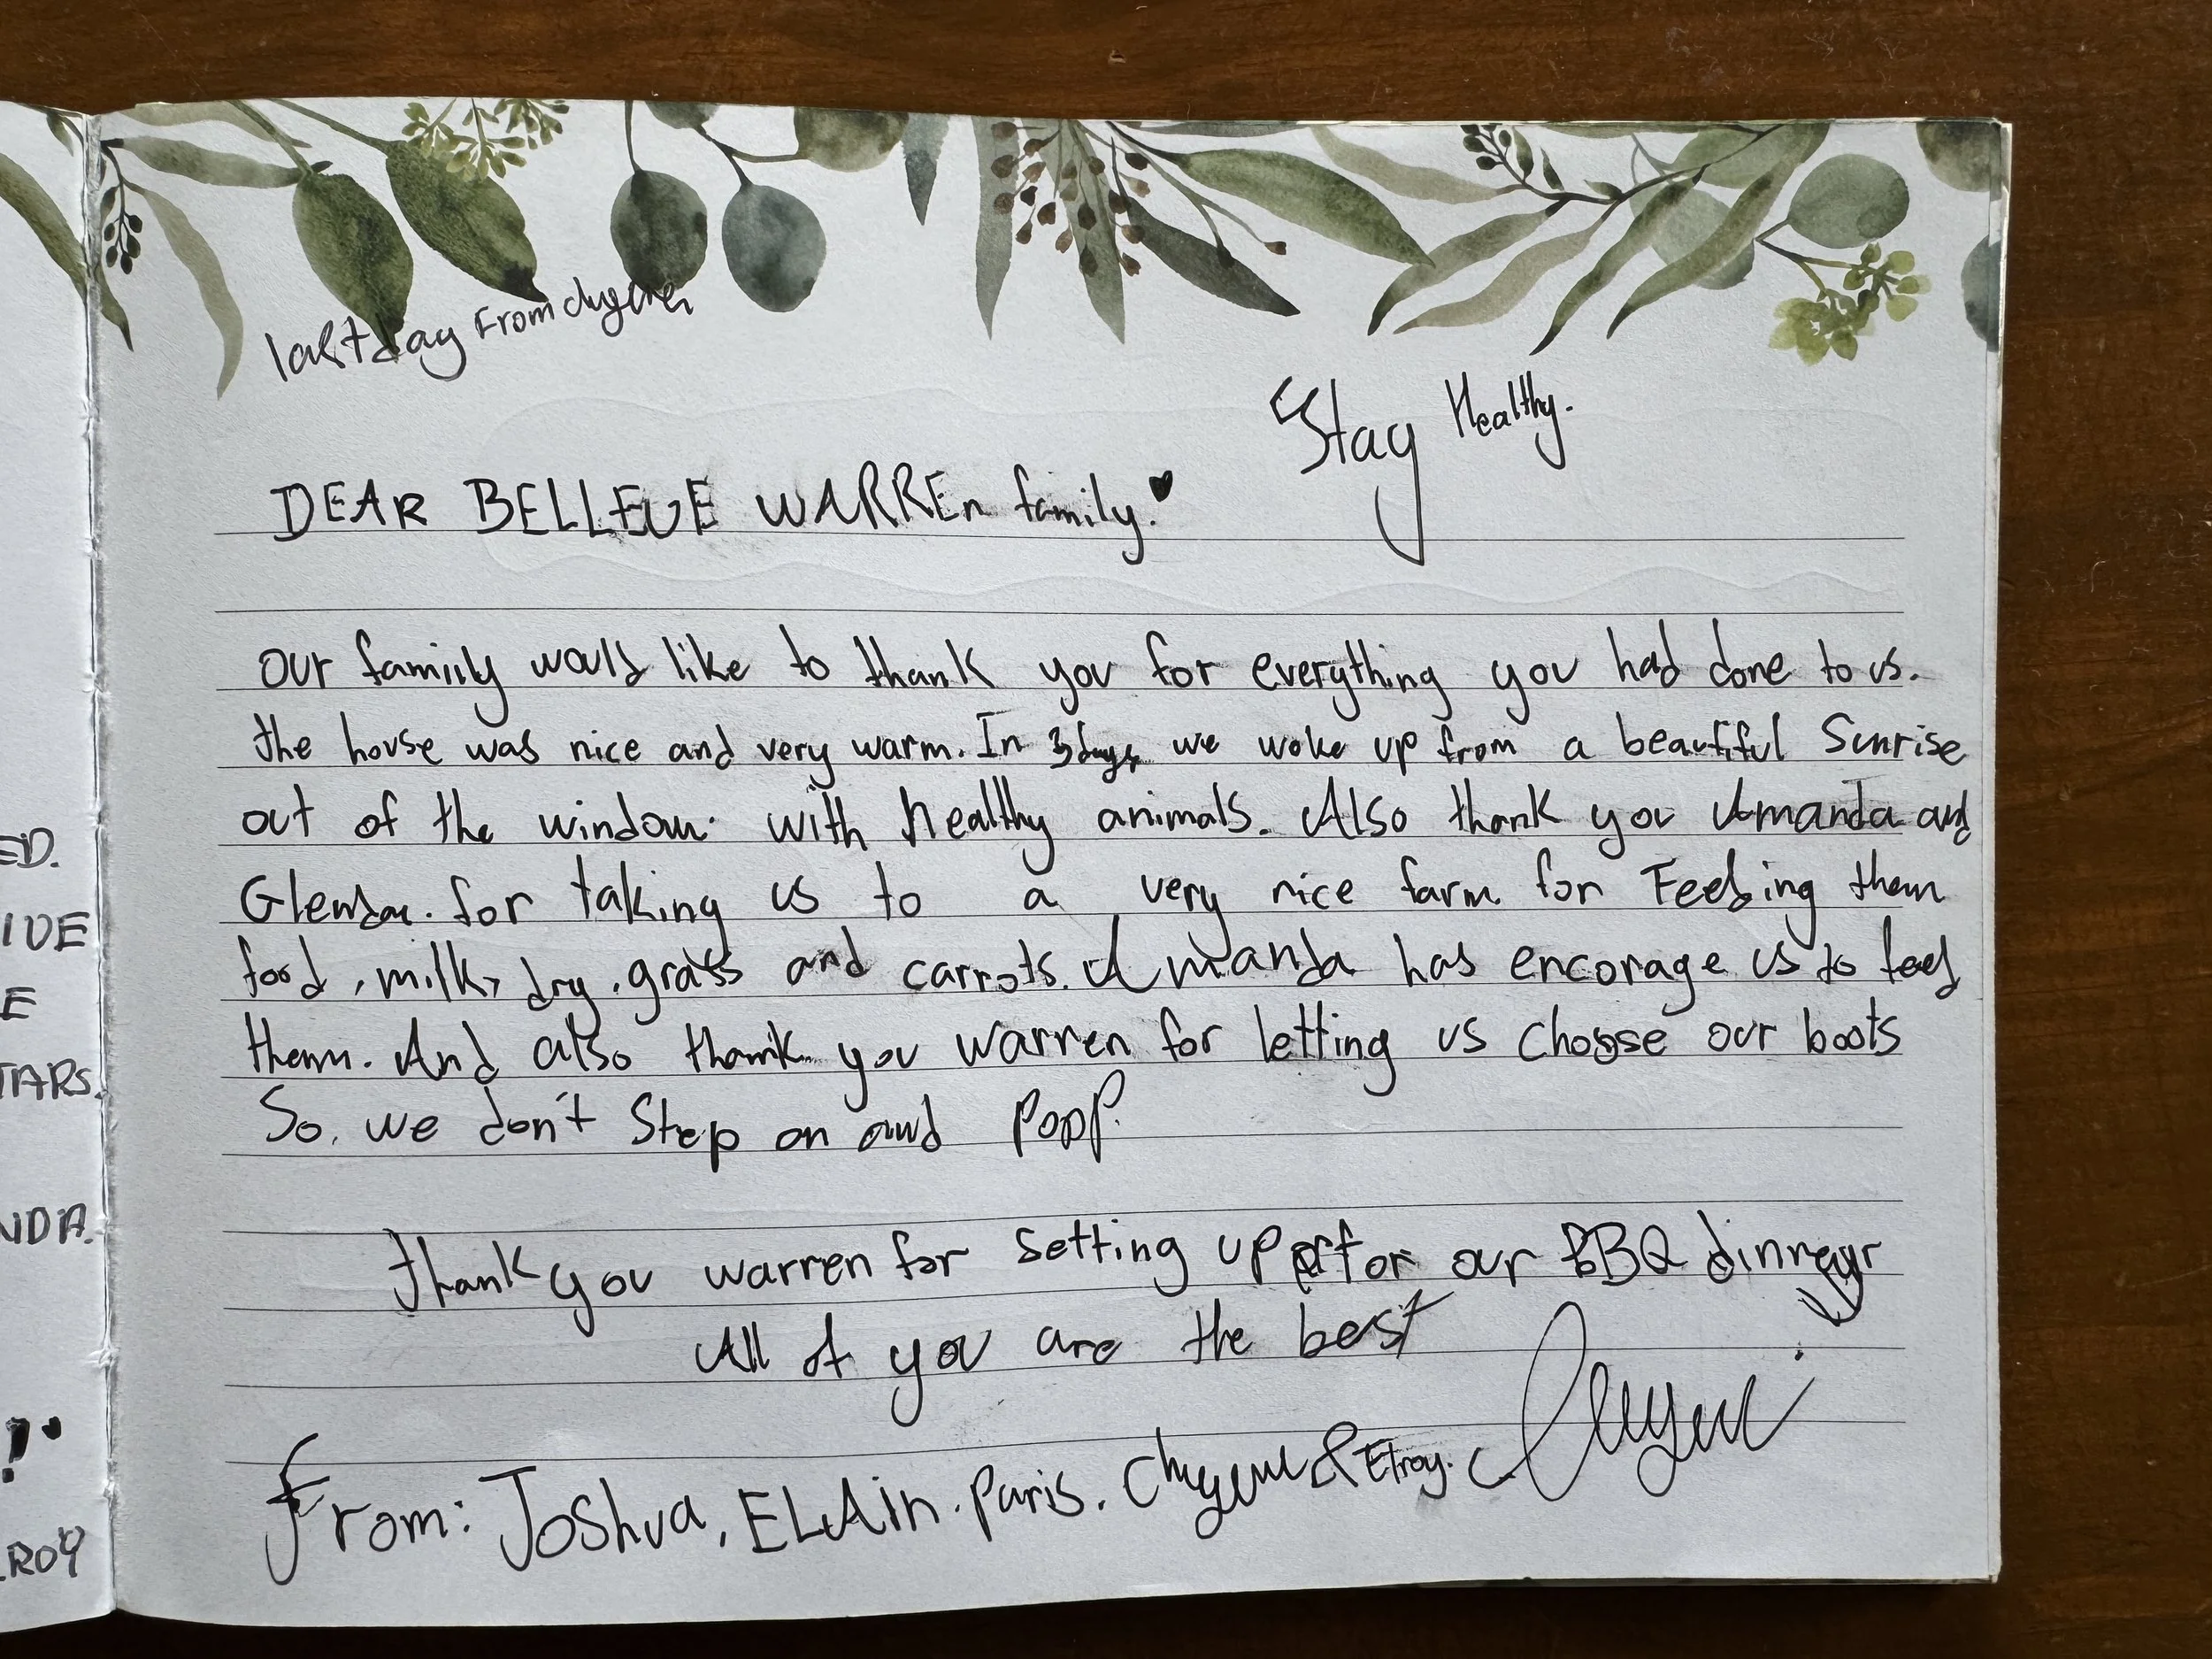 ED.
IDE
E
TARS.
NDA.
!
ROY
last day From chyenei
Stay Healthy.
DEAR BELLEUE WARREn family.♥
our famiily would like to thank you for everything you had done to us.
the house was nice and very warm. In 3 days we woke up from a beautiful Sunrise
out of the window. with healthy animals. Also thank you Amanda and
Glenda. for taking us to a very nice farm for Feeding them
food, milk, dry, grass and carrots. Amanda has encorage us to feed
them. And also thank you warren for letting us choose our boots
So, we don't Step on and Poop.
thank you warren for setting up for our BBQ dinner
All of you are the best
From: Joshua, ELAin. Paris. & Elroy.